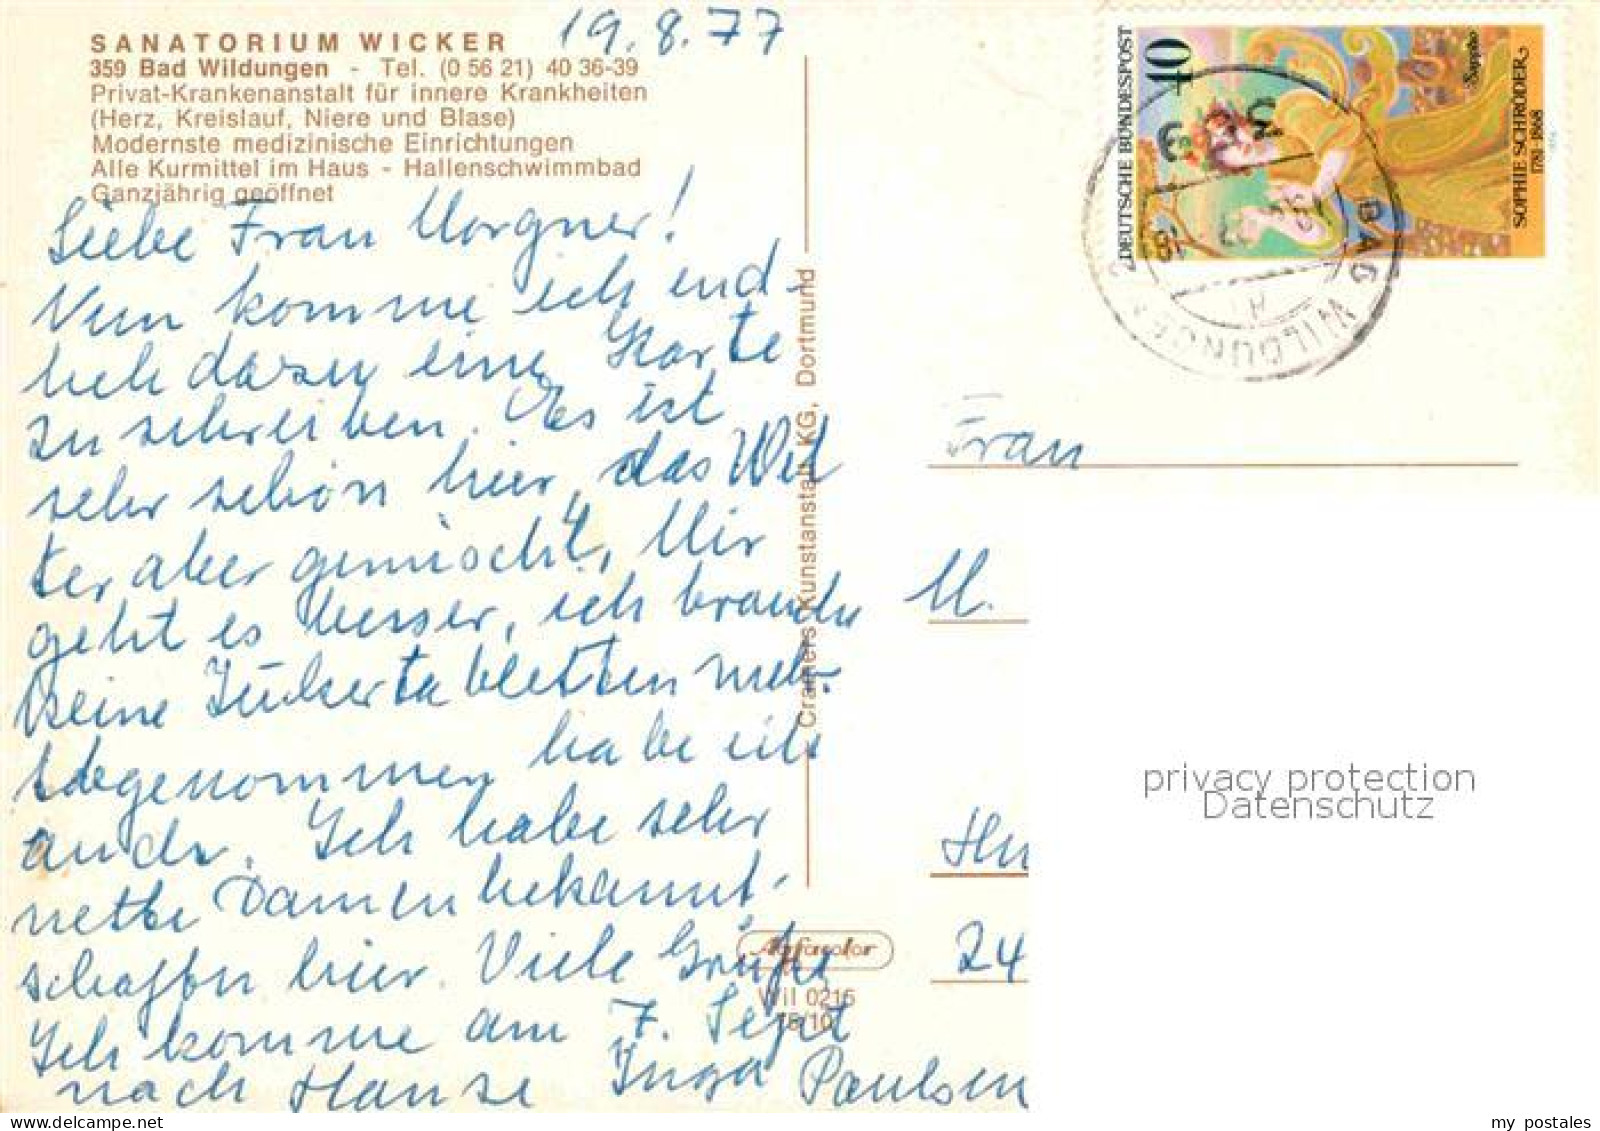 19.8.77
SANATORIUM WICKER
359 Bad Wildungen - Tel. (0 56 21) 40 36-39
Privat-Krankenanstalt für innere Krankheiten
(Herz, Kreislauf, Niere und Blase)
Modernste medizinische Einrichtungen
Alle Kurmittel im Haus - Hallenschwimmbad
Ganzjährig geöffnet
Liebe Frau Morgner!
Nun komme ich end-
lich dazu eine Karte
zu schreiben. Es ist
sehr schön hier, das Wet
ter aber gemischt, Mir
geht es besser, ich brauche
keine Zuckertabletten mehr.
abgenommen habe ich
auch. Ich habe sehr
nette Damenbekannt-
schaften hier. Viele Grüße
Ich komme am 7. Sept
nach Hause Inga Paulsen
Cramers Kunstanstalt KG, Dortmund
Agfacolor
Wil 0215
DEUTSCHE BUNDESPOST
40
Sappho
SOPHIE SCHRÖDER
1781-1868
BAD WILDUNGEN
Frau
M.
24
privacy protection
Datenschutz
my postales